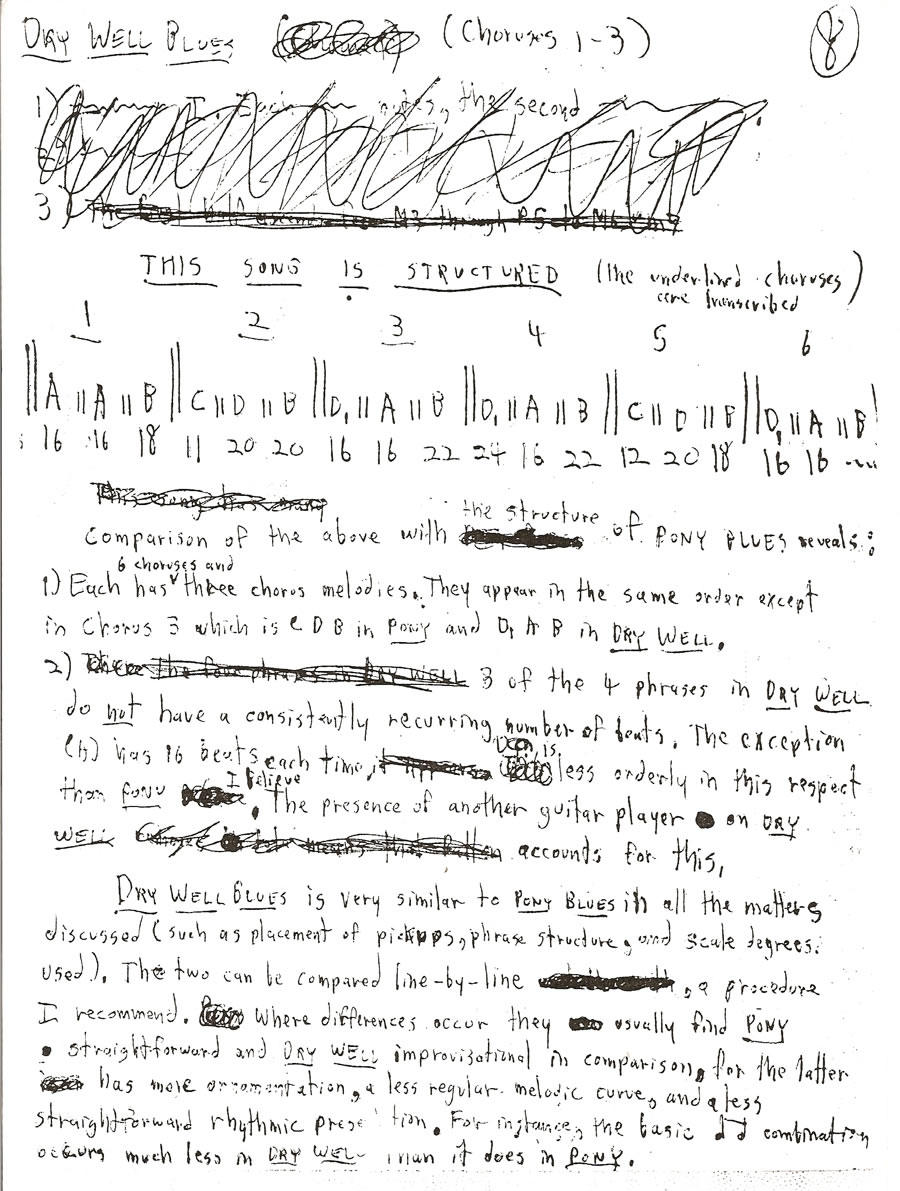 DRY WELL BLUES (Choruses 1-3) 8
1) notes, the second
3) M3 through P5 to M6
THIS SONG IS STRUCTURED (the underlined choruses
are transcribed)
1 2 3 4 5 6
||A || A || B || C || D || B || D, || A || B || D, || A || B || C || D || B || D, || A || B
16 16 18 11 20 20 16 16 22 24 16 22 12 20 18 16 16
This song has many
the structure
Comparison of the above with of PONY BLUES reveals:
6 choruses and
1) Each has three chorus melodies. They appear in the same order except
in Chorus 3 which is C D B in PONY and D, A B in DRY WELL.
2) the four phrases in DRY WELL 3 of the 4 phrases in DRY WELL
do not have a consistently recurring number of beats. The exception
(h) has 16 beats each time, it is less orderly in this respect
than PONY I believe. The presence of another guitar player on DRY
WELL accounts for this,
DRY WELL BLUES is very similar to PONY BLUES in all the matters
discussed (such as placement of pickups, phrase structure, and scale degrees
used). The two can be compared line-by-line, a procedure
I recommend. Where differences occur they usually find PONY
straightforward and DRY WELL improvizational in comparison, for the latter
has more ornamentation, a less regular melodic curve, and a less
straightforward rhythmic prese tion. For instance, the basic combination
occurs much less in DRY WELL than it does in PONY.